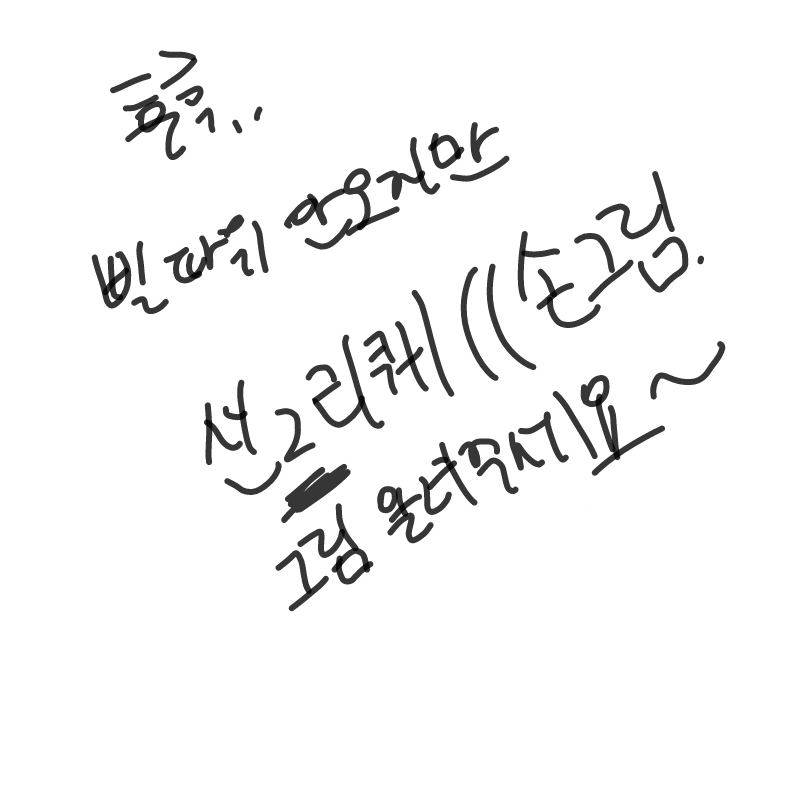 흑흑..
빌 따위 안 오지만
선그리퀘 ((손그림.
그림 올려주세요~